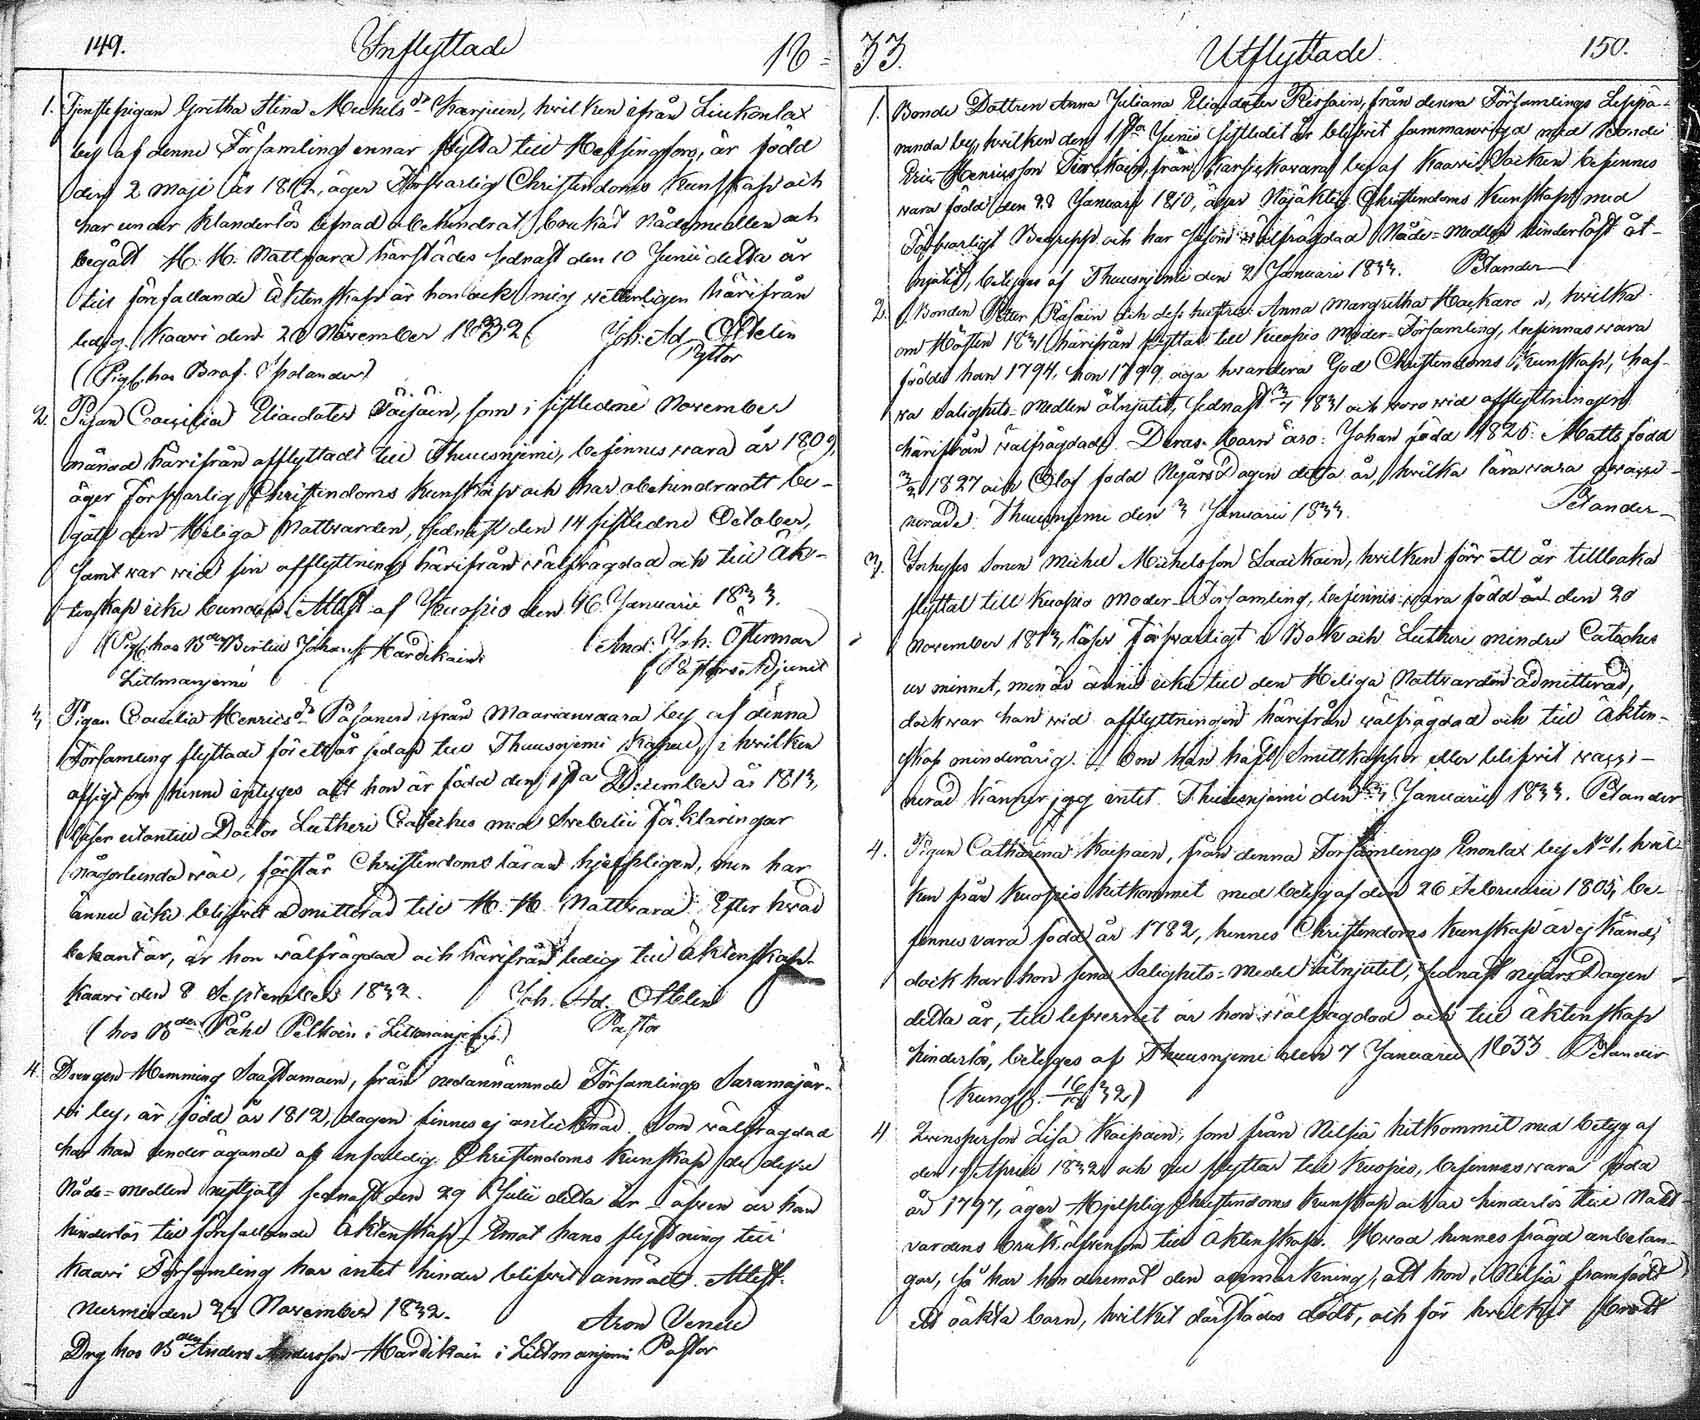 149. Inflyttade 18
1. Tjenstepigan Gretha Stina Michelsdr Karjuin, hvilken ifrån Liukonlax
by af denne Församling ernar flytta till Helsingfors, är född
den 2 Maji år 1812, äger Försvarlig Christendoms Kunskap och
har under klanderlös lefnad obehindrat brukat Nådemedlen och
begått H. H. Nattvard härstädes sednast den 10 Junii detta år
till förefallande Äktenskap är hon ock mig vetterligen härifrån
ledig. Kaavi den 20 November 1832. Joh: Ad. Ottelin
Pastor
(Pig. hos Polander)
2. Pigan Cæcilia Eliædotter Väisäin, som i sistledne November
månad härifrån afflyttade till Thuusnjemi, befinnes vara år 1809,
äger Försvarlig Christendoms Kunskap och har obehindradt be-
gått den Heliga Nattvarden, sednast den 14 sistledne October,
samt war wid sin afflyttning härifrån välfrägdad och till Äkt-
enskap icke bunden. Attest. af Kuopio den 16 Januarii 1833.
(Pig. hos Johan Hardikain And: Joh: Österman
Litlmanjemi Pastors Adjunct
3. Pigan Cæcilia Henricsdr Pasanen ifrån Maarianvaara by af denna
Församling flyttade för ett år sedan till Thuusnjemi Kapell, i hvilken
afsigt om henne intygas att hon är född den 1sta December år 1813,
läser utantill Doctor Lutheri Cateches med Svebilii Förklaringar
någorlunda wäl, förstår Christendomsläran hjelpligen, men har
ännu icke blifvit admitterad till H. H. Nattvard. Efter hvad
bekant är, är hon välfrägdad och härifrån ledig till Äktenskap.
Kaavi den 8 September 1832. Joh. Ad. Ottelin
(hos Bden Påhl Pelkoin i Litlmanjemi) Pastor
4. Drengen Hemming Saastamoin, från nedannämnde Församlings Saramäjär-
vi by, är född år 1812, dagen finnes ej antecknad. Som välfrägdad
har han under ägande af enfaldig Christendoms Kunskap de dyre
Nåde=medlen nyttjat sednast den 29 Julii detta år äfven är han
hinderlös till förefallande Äktenskap. Emot hans flyttning till
Kaavi Församling har intet hinder blifvit anmält. Attest.
Nurmis den 23 November 1832. Aron Venell
Drg hos Bden Anders Andersson Hardikain i Litlmanjemi Pastor
33. Utflyttade. 150.
1. Bonde Dottren Anna Juliana Eliædotter Räisäin, från denna Församlings Leppä-
randa by, hvilken den 17de Junii sistledit år blifvit sammanvigd med Bonden
Eric Henricsson från Karsikkovaara by af Kaavi Socken befinnes
vara född den 28 Januarii 1810, äger Nöjaktig Christendoms Kunskap med
Försvarligt Begrepp och har såsom wälfrägdad Nåde=Medlen hinderlöst åt-
njutit, betygas af Thuusnjemi den 2 Januarii 1833. Pelander
2. Bonden Petter Räsäin och dess hustru Anna Margretha Hackara, hvilka
om Hösten 1831 härifrån flyttat till Kuopio Moder=Församling, befinnas vara
födde han 1794, hon 1799, äga hvardera God Christendoms Kunskap, haf-
va Salighets=Medlen åtnjutit, sednast 1831 och voro wid afflyttningen
härifrån wälfrägdade. Deras Barn äro: Johan född 1825: Matts född
1827 och Olof född Nyårs Dagen detta år, hvilka lära vara vacci-
nerade. Thuusnjemi den 3 Januarii 1833. Pelander
3. Inhyses Sonen Michel Michelsson Laaikain, hvilken förr ett år tillbaka
flyttat till Kuopio Moder=Församling, befinnes vara född den 20
November 1813, läser Försvarligt i Bok och Lutheri mindre Cateches
ur minnet, men är ännu icke till den Heliga Nattvarden admitterad,
dock war han wid afflyttningen härifrån välfrägdad och till Äkten-
skap minderårig. Om han haft Smittkoppor eller blifvit vacci-
nerad känner jag intet. Thuusnjemi den 3 Januarii 1833. Pelander
4. Pigan Catharina Kaipain, från denna Församlings Enonlax by No 1. hvil-
ken från Kuopio hitkommit med betyg af den 26 Februarii 1805, be-
finnes vara född år 1782, hennes Christendoms Kunskap är ej känd,
dock har hon sina Salighets=Medel åtnjutit, sednast nyårs Dagen
detta år, till lefvernet är hon välfrägdad och till Äktenskap
hinderlös, betygas af Thuusnjemi den 7 Januarii 1833 Pelander
(Kungl. 32)
4 Qvinsperson Lisa Kaipain, som från Nilsiä hitkommit med betyg af
den 19 April 1832 och nu flyttar till Kuopio, befinnes vara föda
år 1797, äger Hjelplig Christendoms Kunskap och är hinderlös till Natt-
vardens bruk, äfvensom till Äktenskap. Hvad hennes frägd anbelan-
gar, så har hon deremot den anmärkning, att hon i Nilsiä framfödt
et oäkta barn, hvilket därstädes dödt, och för hvilket brott